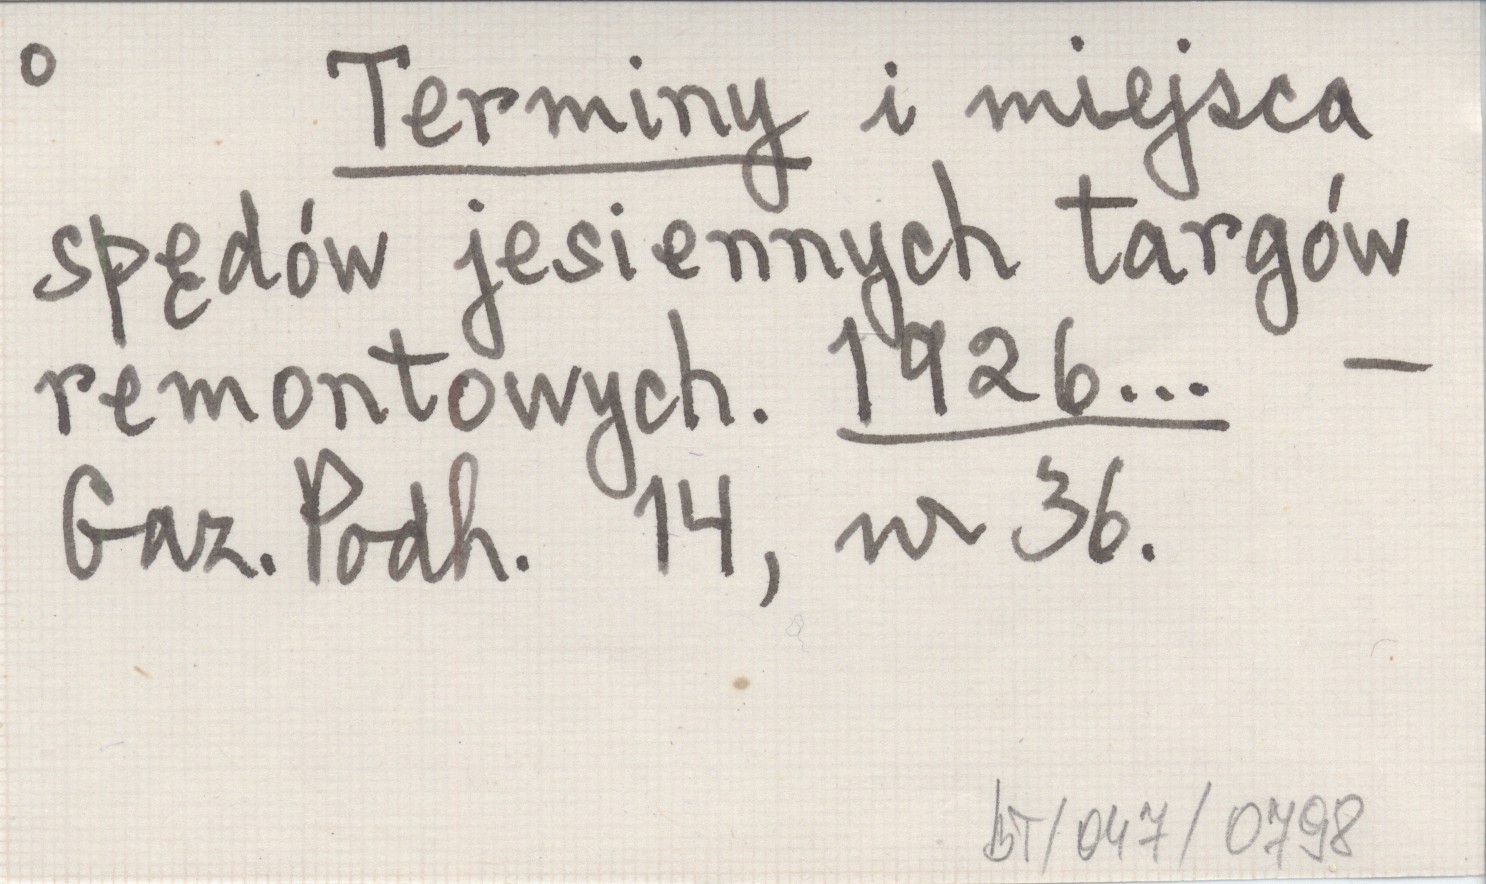 o Terminy i miejsca
spędów jesiennych targów
remontowych. 1926... –
Gaz. Podh. 14, nr 36.
bT/047/0798